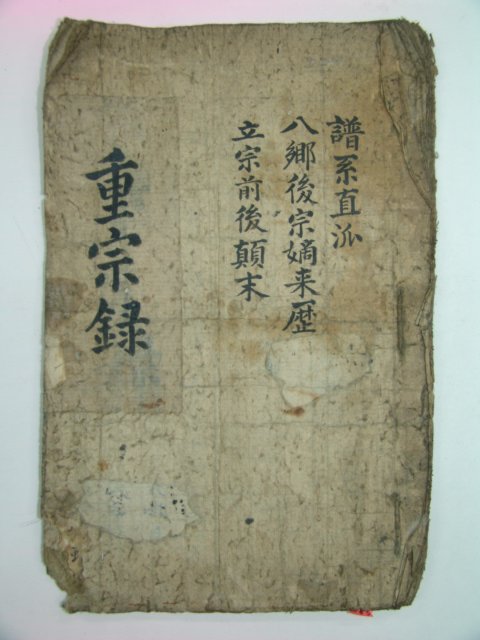 譜系直派
八鄕後宗嫡来歴
立宗前後顚末
重宗録